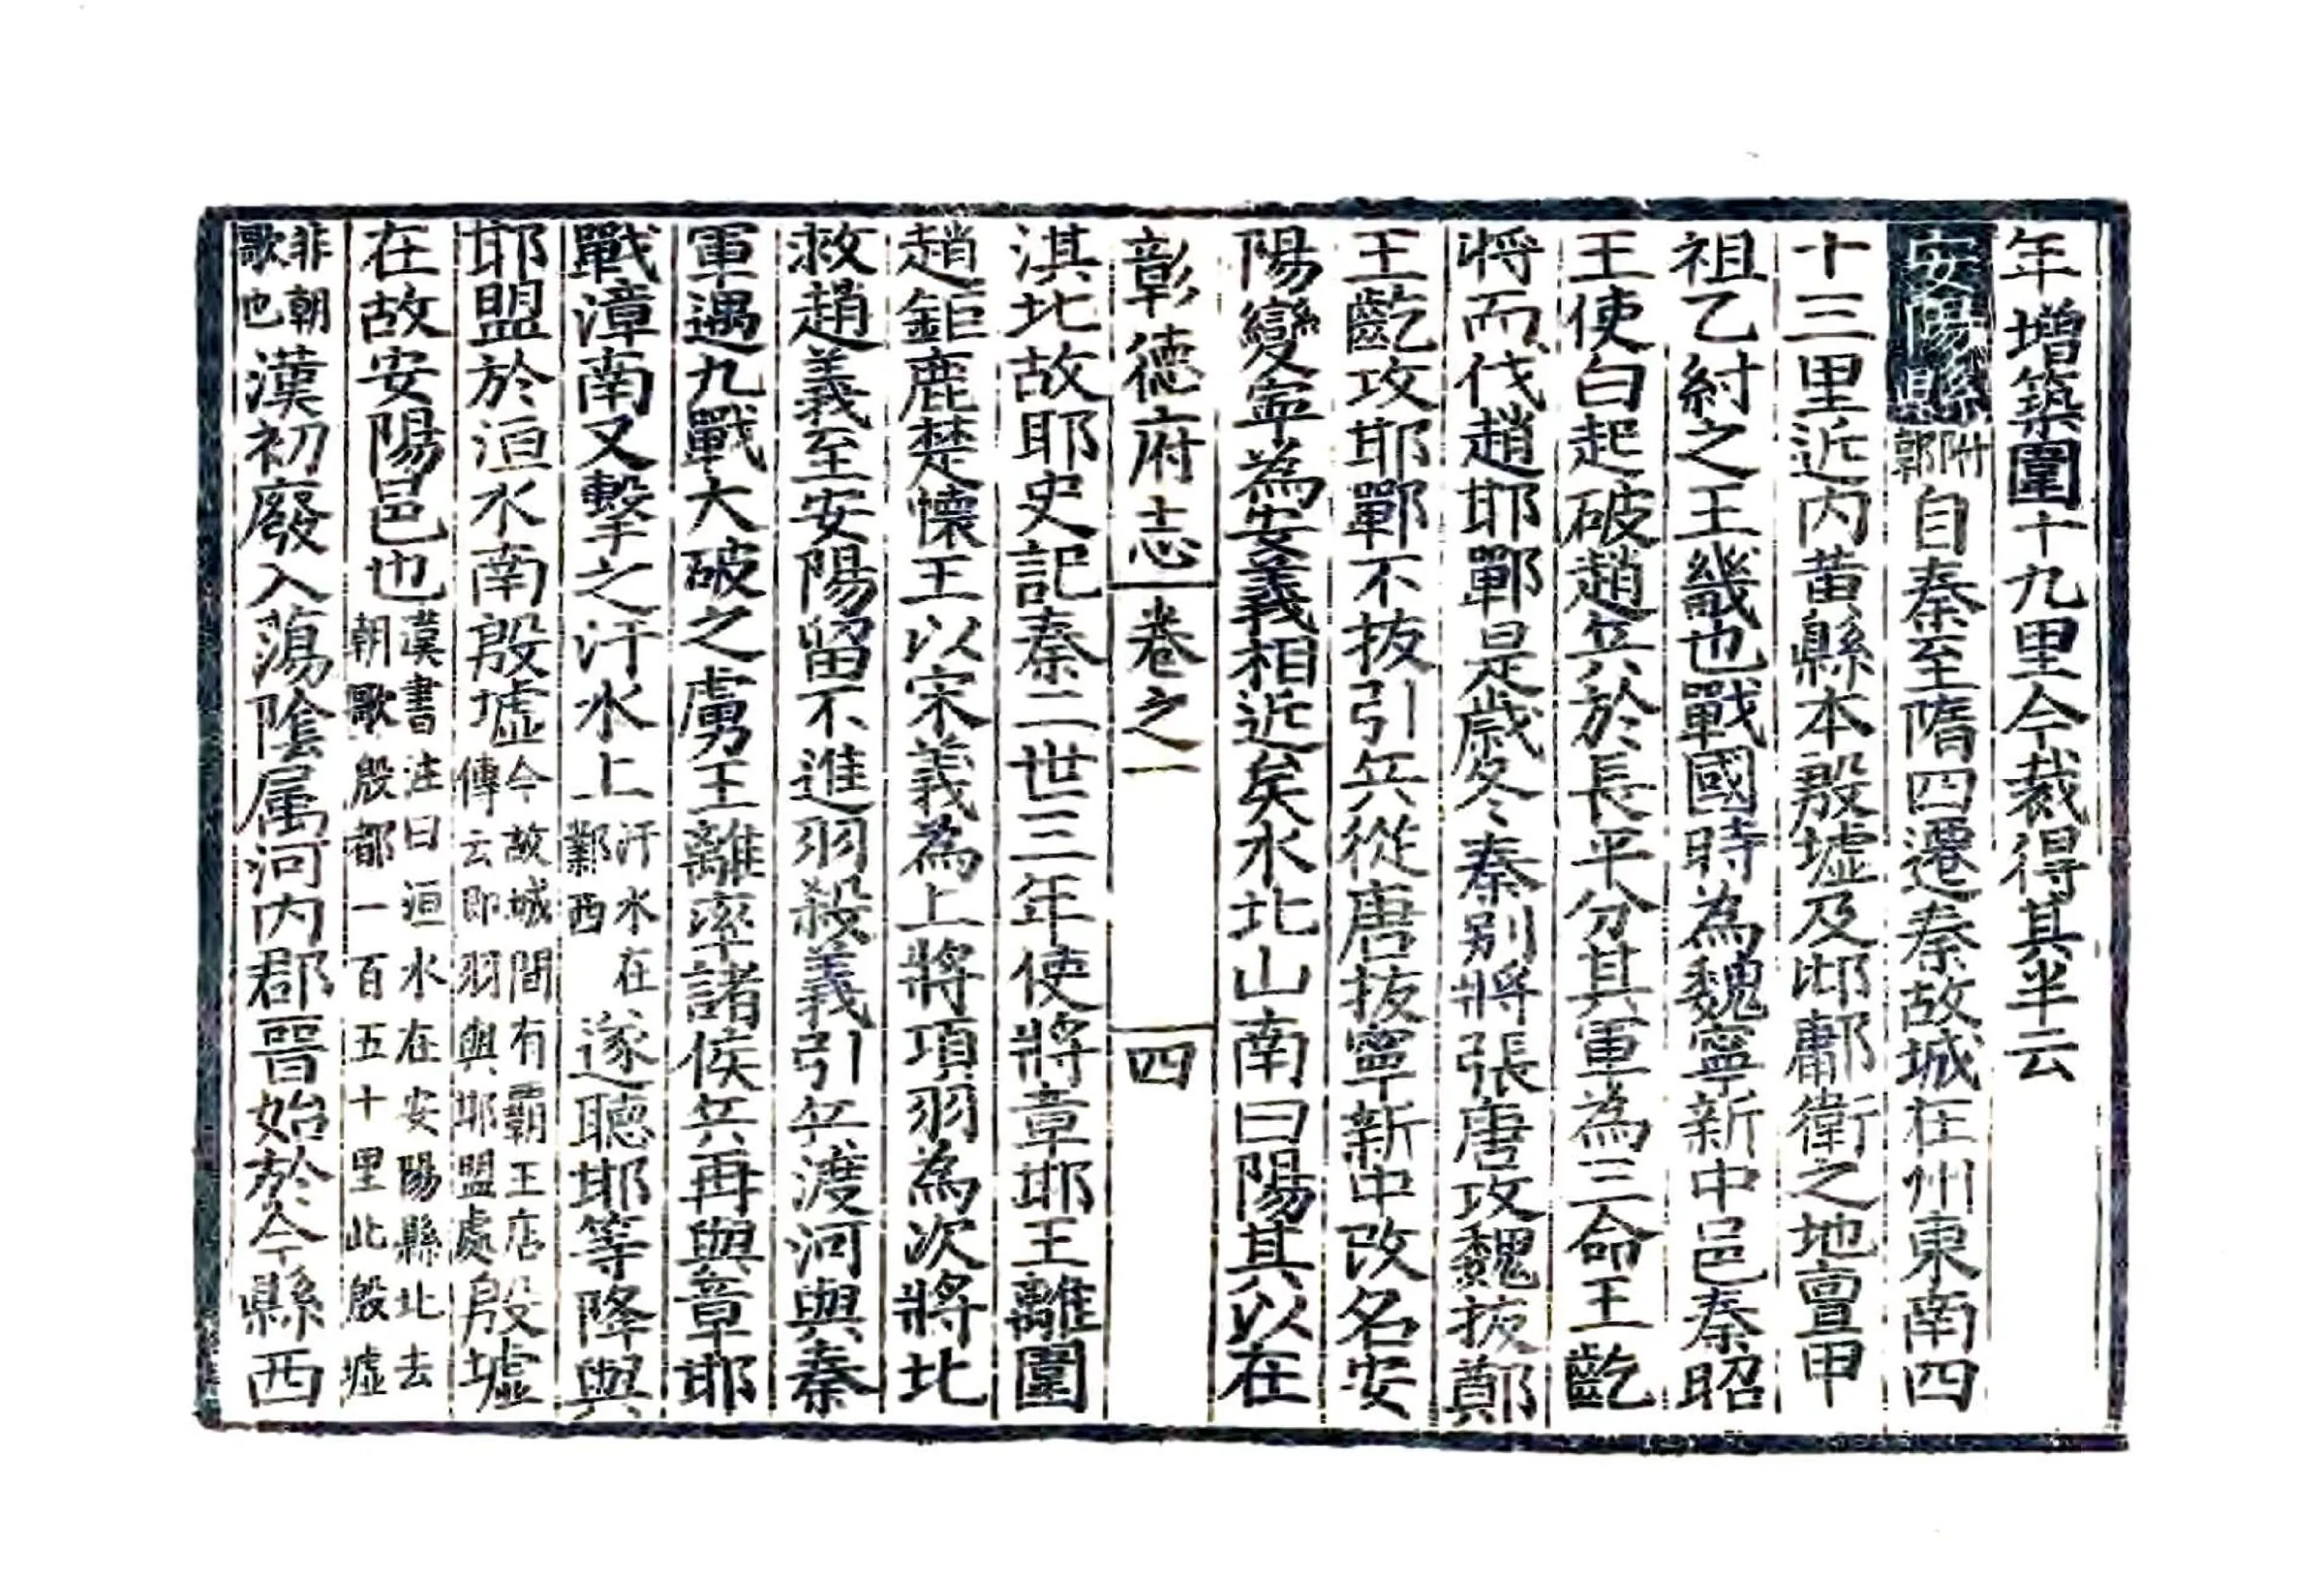 年增築圍十九里今裁得其半云
安陽縣附郭自秦至隋四遷秦故城在州東南四
十三里近内黄縣本殷墟及邶鄘衛之地亶甲
祖乙紂之王畿也戰國時為魏寧新中邑秦昭
王使白起破趙兵於長平分其軍為三命王齕
將而伐趙邯鄲是歲冬秦别將張唐攻魏拔鄭
王齕攻邯鄲不拔引兵從唐拔寧新中改名安
陽變寧為安義相近矣水北山南曰陽其以在
彰德府志 卷之一 四
淇北故耶史記秦二世三年使將章邯王離圍
趙鉅鹿楚懷王以宋義為上將項羽為次將北
救趙義至安陽留不進羽殺義引兵渡河與秦
軍遇九戰大破之虜王離率諸侯兵再與章邯
戰漳南又擊之汙水上汙水在鄴西遂聽邯等降與
邯盟於洹水南殷墟今故城間有霸王店傳云即羽與邯盟處殷墟
在故安陽邑也漢書注曰洹水在安陽縣北去朝歌殷都一百五十里此殷墟
非朝歌也漢初廢入蕩陰属河内郡晉始於今縣西